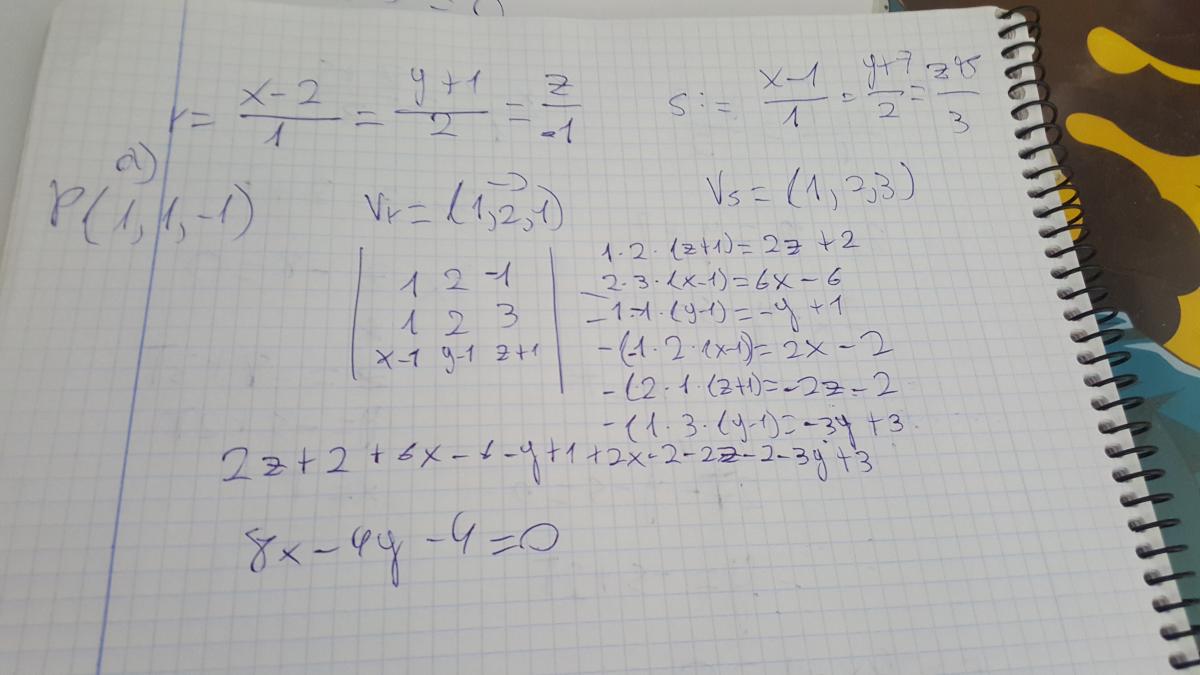 r = x-2/1 = y+1/2 = z/-1
S := x-1/1 = y+7/2 = /3
a)
P(1,1,-1)
Vr = (1,2,-1)
Vs = (1,2,3)
1 2 -1
1 2 3
x-1 y-1 z+1
1·2·(z+1)=2z+2
2·3·(x-1)=6x-6
-1·1·(y-1)=-y+1
-(-1·2·(x-1)=2x-2
-(2·1·(z+1)=-2z-2
-(1·3·(y-1)=-3y+3
2z+2+6x-6-y+1+2x-2-2z-2-3y+3
8x-4y-4=0